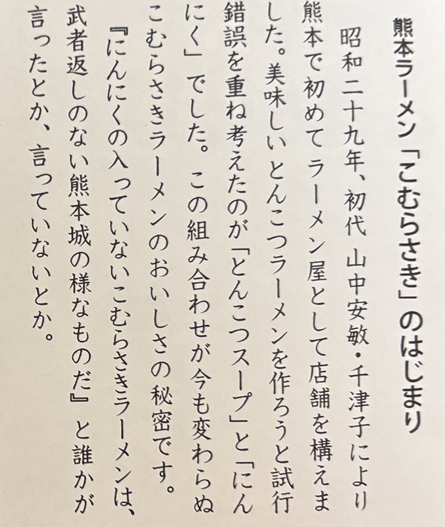 熊本ラーメン「こむらさき」のはじまり
昭和二十九年、初代 山中安敏・千津子により
熊本で初めてラーメン屋として店舗を構えま
した。美味しいとんこつラーメンを作ろうと試行
錯誤を重ね考えたのが「とんこつスープ」と「にん
にく」でした。この組み合わせが今も変わらぬ
こむらさきラーメンのおいしさの秘密です。
『にんにくの入っていないこむらさきラーメンは、
武者返しのない熊本城の様なものだ』と誰かが
言ったとか、言っていないとか。